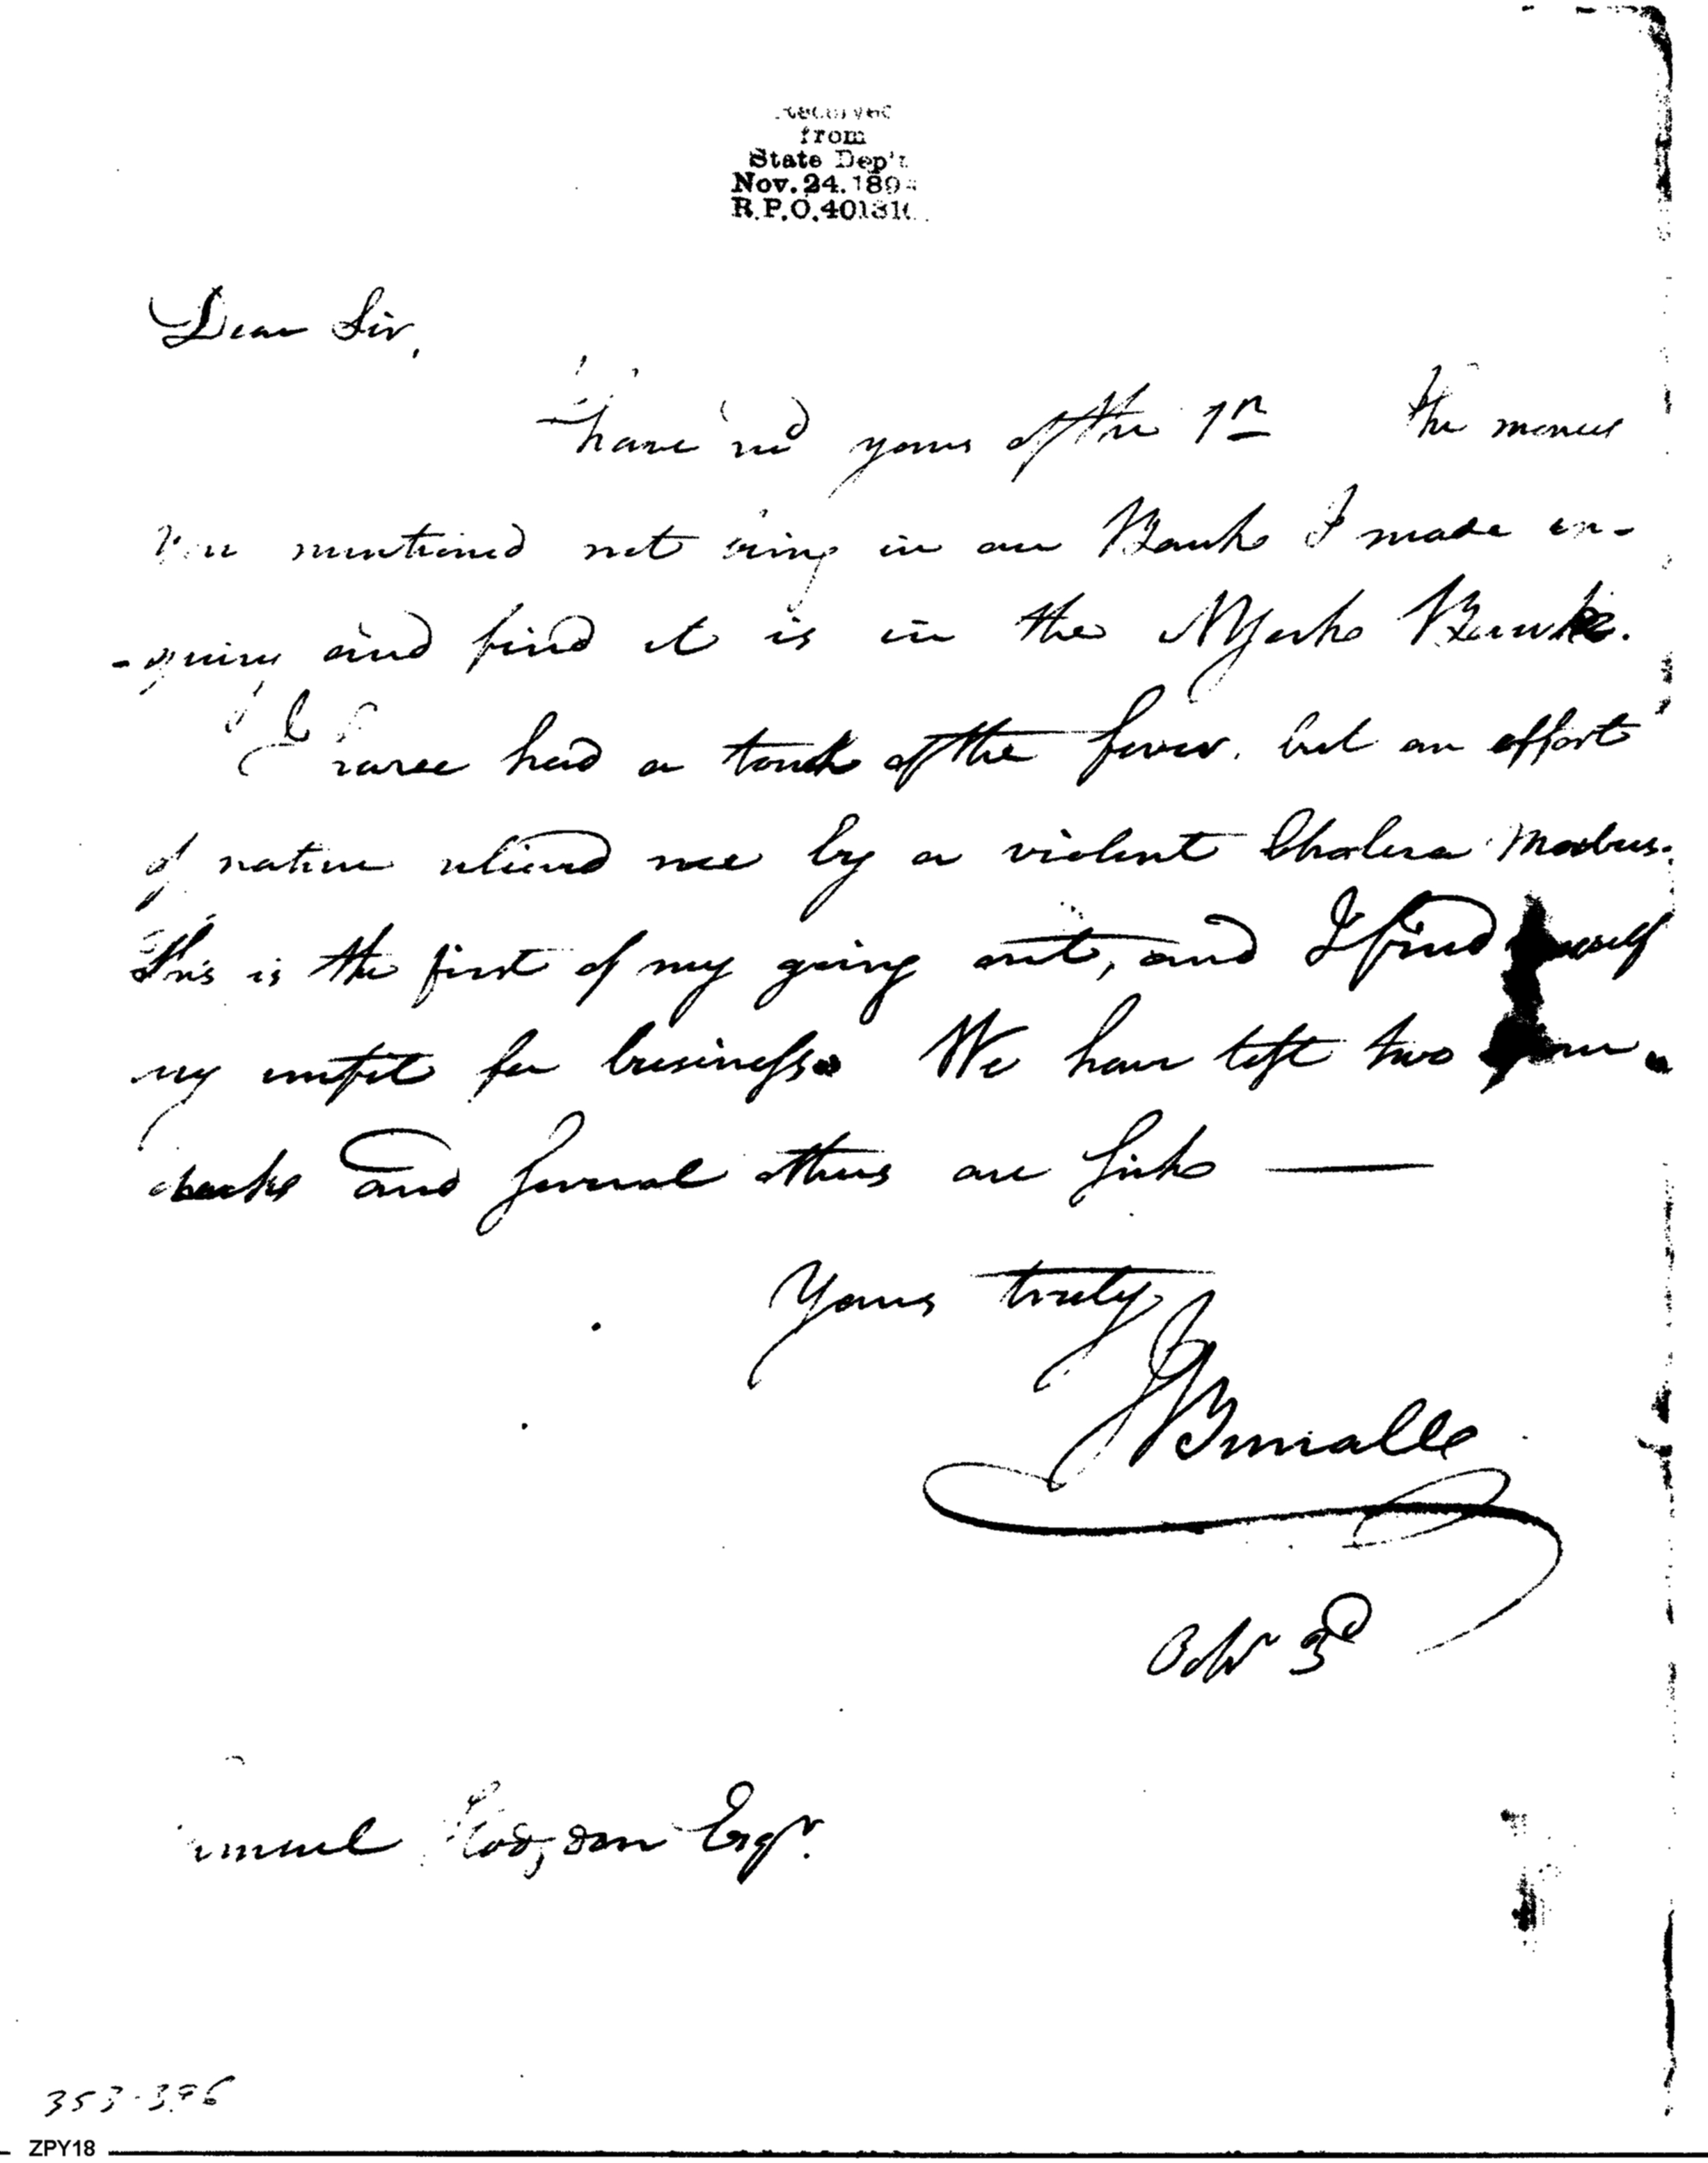 Received
from
State Dep't
Nov. 24. 189
R.P.O. 401310
Dear Sir,
I have rec'd yours of the 1st The money
you mentioned not being in our Bank I made en-
-quiry and find it is in the NYork Bank.
I have had a touch of the fever, but an effort
of nature reliev'd me by a violent Cholera Morbus.
This is the first of my going out, and I find myself
very unfit for business. We have lost two
and several others are sick —
Yours truly
Octbr 3d
Samuel Hodgdon Esqr.
353-396
ZPY18